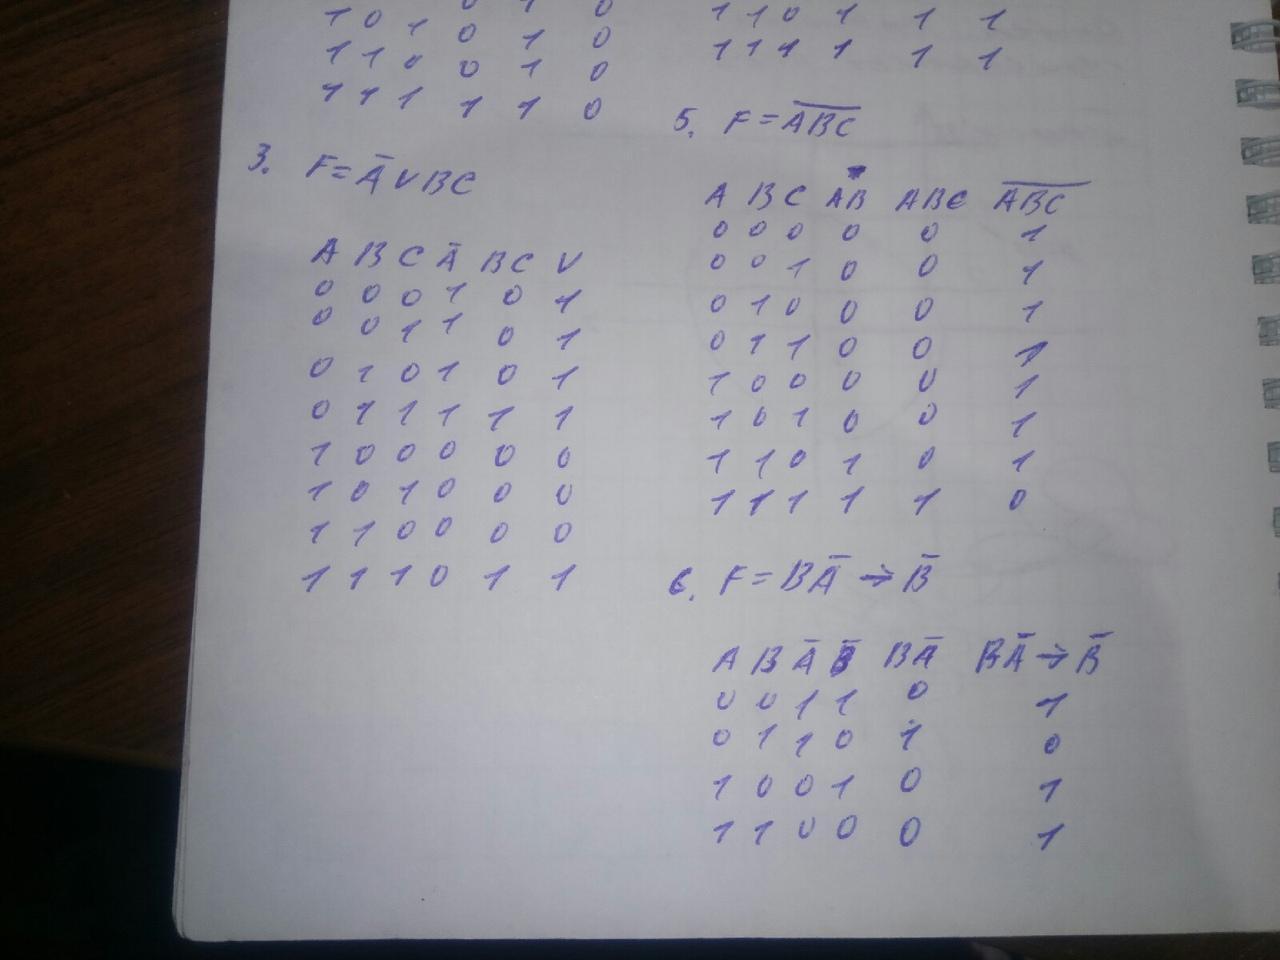 1 0 1 0 1 0
1 1 0 0 1 0
1 1 1 1 1 0
3. F = A̅ ∨ BC
A B C A̅ BC V
0 0 0 1 0 1
0 0 1 1 0 1
0 1 0 1 0 1
0 1 1 1 1 1
1 0 0 0 0 0
1 0 1 0 0 0
1 1 0 0 0 0
1 1 1 0 1 1
1 1 0 1 1 1
1 1 1 1 1 1
5. F = A̅B̅C̅
A B C AB ABC A̅B̅C̅
0 0 0 0 0 1
0 0 1 0 0 1
0 1 0 0 0 1
0 1 1 0 0 1
1 0 0 0 0 1
1 0 1 0 0 1
1 1 0 1 0 1
1 1 1 1 1 0
6. F = BA̅ → B̅
A B A̅ B̅ BA̅ BA̅ → B̅
0 0 1 1 0 1
0 1 1 0 1 0
1 0 0 1 0 1
1 1 0 0 0 1